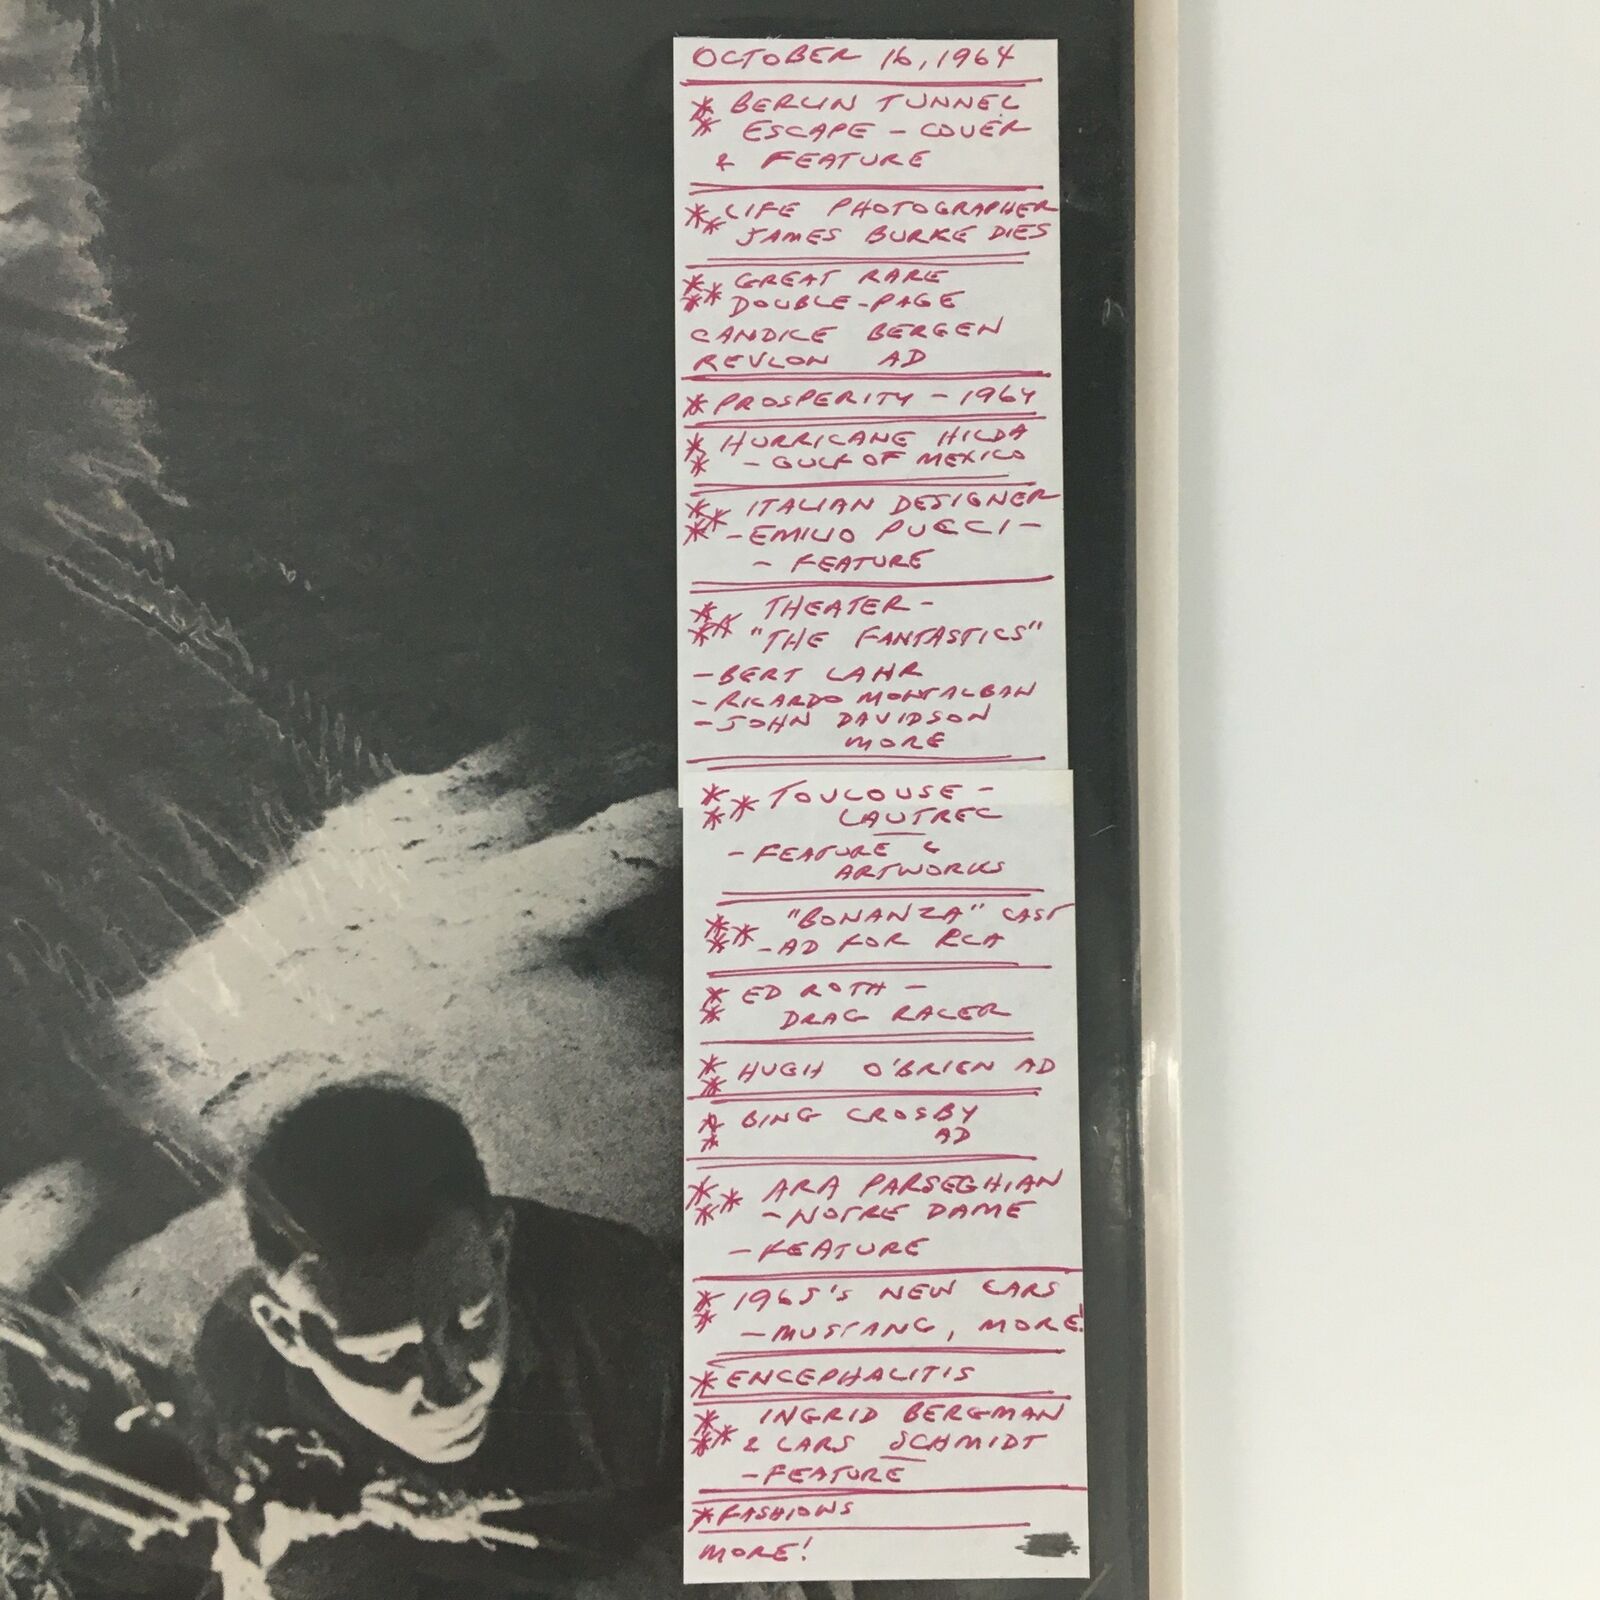 OCTOBER 16, 1964
* BERLIN TUNNEL
* ESCAPE - COVER
& FEATURE
* LIFE PHOTOGRAPHER
** JAMES BURKE DIES
* GREAT RARE
** DOUBLE-PAGE
CANDICE BERGEN
REVLON AD
* PROSPERITY - 1964
* HURRICANE HILDA
* - GULF OF MEXICO
* ITALIAN DESIGNER
** - EMILIO PUCCI -
- FEATURE
* THEATER -
** "THE FANTASTICS"
- BERT LAHR
- RICARDO MONTALBAN
- JOHN DAVIDSON
MORE
** TOULOUSE -
* LAUTREC
- FEATURE &
ARTWORKS
* "BONANZA" CAST
** - AD FOR RCA
* ED ROTH -
* DRAG RACER
* HUGH O'BRIEN AD
*
* BING CROSBY
* AD
** ARA PARSEGHIAN
* - NOTRE DAME
- FEATURE
* 1965'S NEW CARS
* - MUSTANG, MORE!
* ENCEPHALITIS
* INGRID BERGMAN
** & LARS SCHMIDT
- FEATURE
* FASHIONS
MORE!